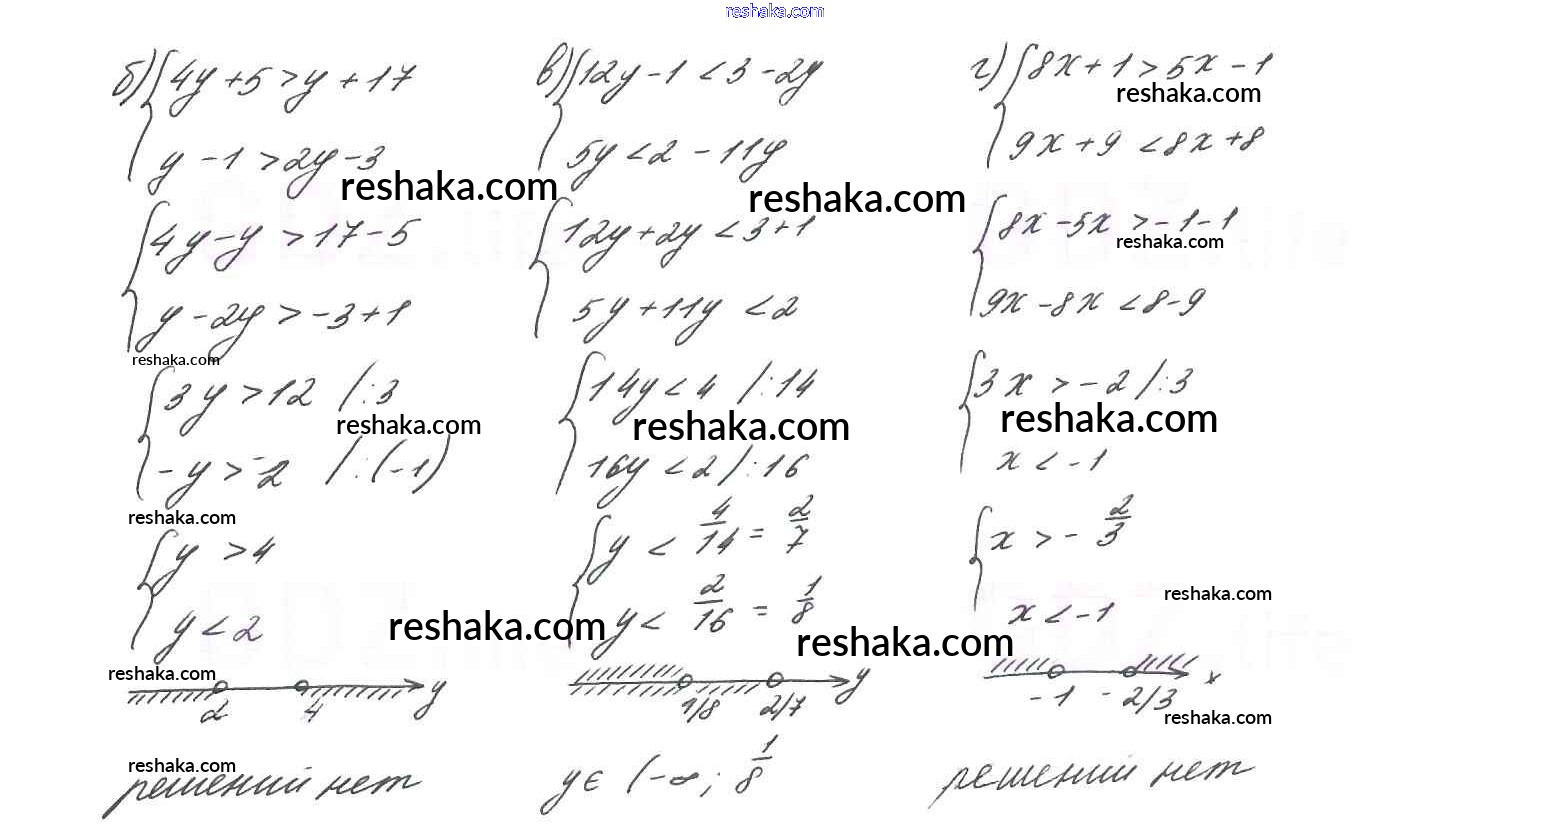 reshaka.com
б) { 4y + 5 > y + 17
y - 1 > 2y - 3
reshaka.com
{ 4y - y > 17 - 5
y - 2y > -3 + 1
reshaka.com
{ 3y > 12 /:3
reshaka.com
-y > -2 /:(-1)
reshaka.com
{ y > 4
y < 2
reshaka.com
reshaka.com
y
2 4
reshaka.com
решений нет
в) { 12y - 1 < 3 - 2y
5y < 2 - 11y
reshaka.com
{ 12y + 2y < 3 + 1
5y + 11y < 2
{ 14y < 4 /:14
reshaka.com
16y < 2 /:16
{ y < 4/14 = 2/7
y < 2/16 = 1/8
reshaka.com
y
1/8 2/7
y ∈ (-∞; 1/8
г) { 8x + 1 > 5x - 1
reshaka.com
9x + 9 < 8x + 8
{ 8x - 5x > -1 - 1
reshaka.com
9x - 8x < 8 - 9
{ 3x > -2 /:3
reshaka.com
x < -1
{ x > - 2/3
reshaka.com
x < -1
x
-1 -2/3
reshaka.com
решений нет